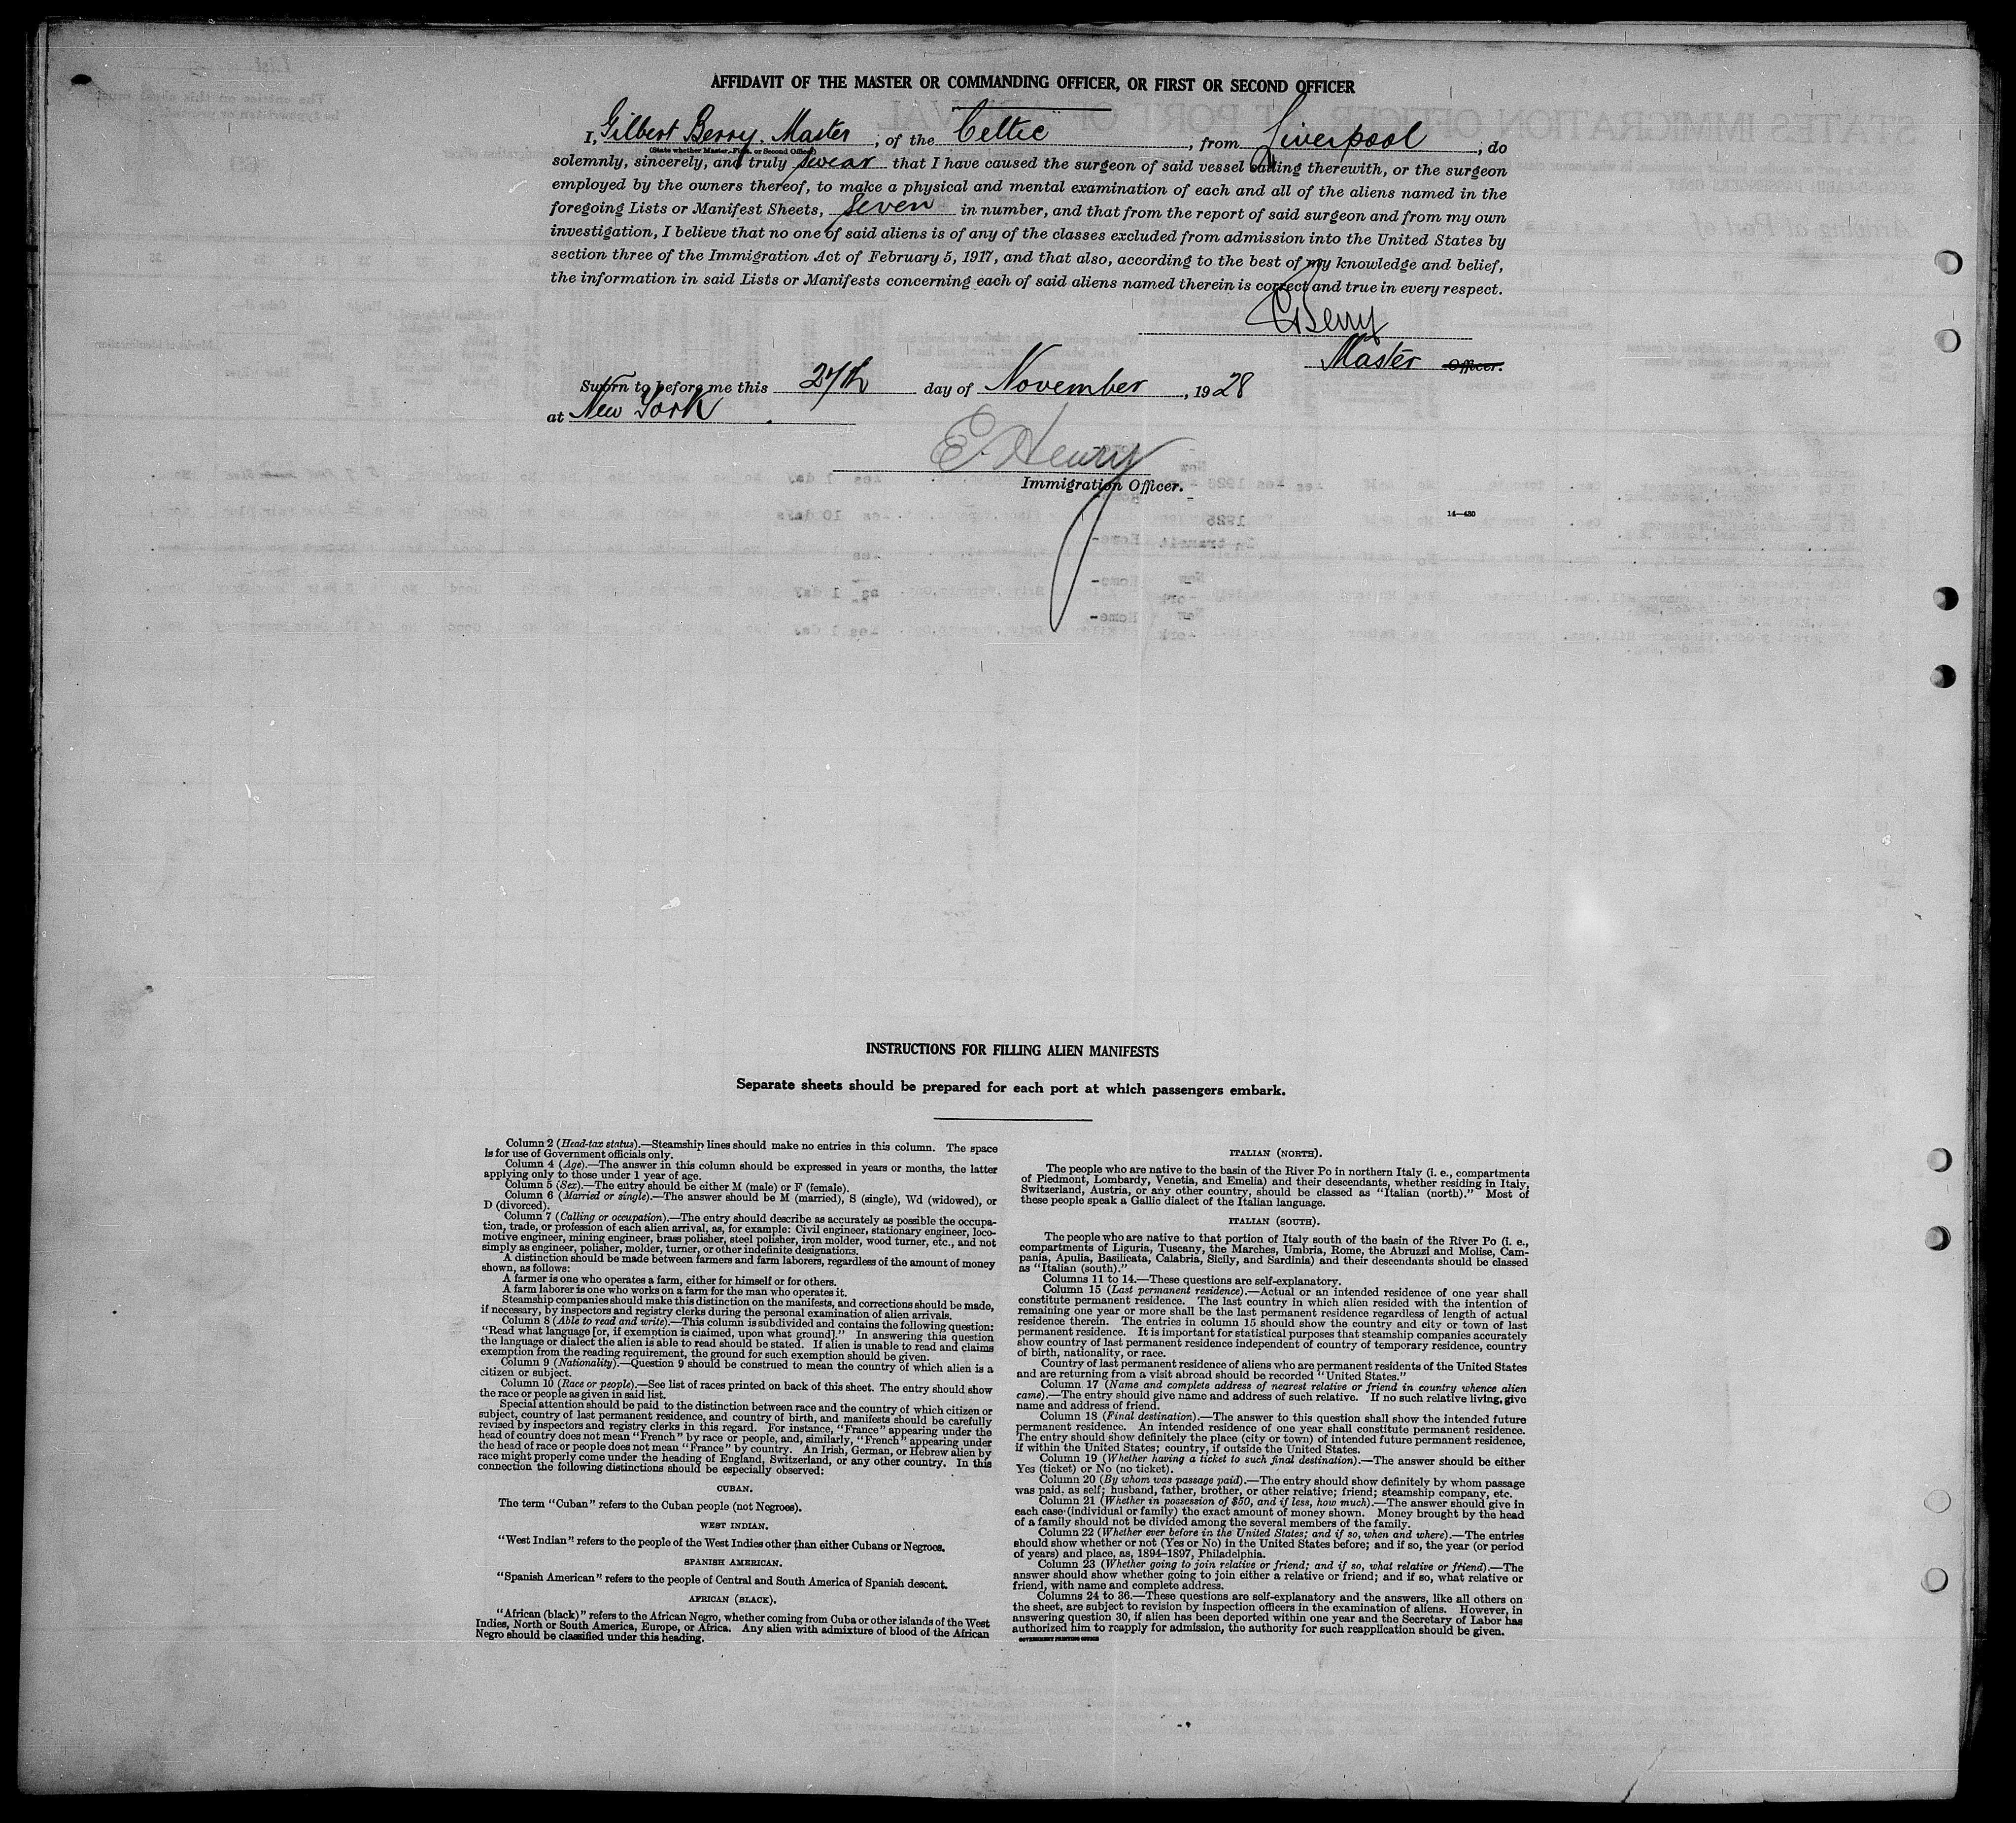 AFFIDAVIT OF THE MASTER OR COMMANDING OFFICER, OR FIRST OR SECOND OFFICER
I, Gilbert Berry. Master, of the Celtic, from Liverpool, do
(State whether Master, First, or Second Officer)
solemnly, sincerely, and truly swear that I have caused the surgeon of said vessel sailing therewith, or the surgeon
employed by the owners thereof, to make a physical and mental examination of each and all of the aliens named in the
foregoing Lists or Manifest Sheets, Seven in number, and that from the report of said surgeon and from my own
investigation, I believe that no one of said aliens is of any of the classes excluded from admission into the United States by
section three of the Immigration Act of February 5, 1917, and that also, according to the best of my knowledge and belief,
the information in said Lists or Manifests concerning each of said aliens named therein is correct and true in every respect.
GBerry
Master Officer.
Sworn to before me this 27th day of November, 1928
at New York.
E. Henry
Immigration Officer.
14—480
INSTRUCTIONS FOR FILLING ALIEN MANIFESTS
Separate sheets should be prepared for each port at which passengers embark.
Column 2 (Head-tax status).—Steamship lines should make no entries in this column. The space
is for use of Government officials only.
Column 4 (Age).—The answer in this column should be expressed in years or months, the latter
applying only to those under 1 year of age.
Column 5 (Sex).—The entry should be either M (male) or F (female).
Column 6 (Married or single).—The answer should be M (married), S (single), Wd (widowed), or
D (divorced).
Column 7 (Calling or occupation).—The entry should describe as accurately as possible the occupa-
tion, trade, or profession of each alien arrival, as, for example: Civil engineer, stationary engineer, loco-
motive engineer, mining engineer, brass polisher, steel polisher, iron molder, wood turner, etc., and not
simply as engineer, polisher, molder, turner, or other indefinite designations.
A distinction should be made between farmers and farm laborers, regardless of the amount of money
shown, as follows:
A farmer is one who operates a farm, either for himself or for others.
A farm laborer is one who works on a farm for the man who operates it.
Steamship companies should make this distinction on the manifests, and corrections should be made,
if necessary, by inspectors and registry clerks during the personal examination of alien arrivals.
Column 8 (Able to read and write).—This column is subdivided and contains the following question:
"Read what language [or, if exemption is claimed, upon what ground]." In answering this question
the language or dialect the alien is able to read should be stated. If alien is unable to read and claims
exemption from the reading requirement, the ground for such exemption should be given.
Column 9 (Nationality).—Question 9 should be construed to mean the country of which alien is a
citizen or subject.
Column 10 (Race or people).—See list of races printed on back of this sheet. The entry should show
the race or people as given in said list.
Special attention should be paid to the distinction between race and the country of which citizen or
subject, country of last permanent residence, and country of birth, and manifests should be carefully
revised by inspectors and registry clerks in this regard. For instance, "France" appearing under the
head of country does not mean "French" by race or people, and, similarly, "French" appearing under
the head of race or people does not mean "France" by country. An Irish, German, or Hebrew alien by
race might properly come under the heading of England, Switzerland, or any other country. In this
connection the following distinctions should be especially observed:
CUBAN.
The term "Cuban" refers to the Cuban people (not Negroes).
WEST INDIAN.
"West Indian" refers to the people of the West Indies other than either Cubans or Negroes.
SPANISH AMERICAN.
"Spanish American" refers to the people of Central and South America of Spanish descent.
AFRICAN (BLACK).
"African (black)" refers to the African Negro, whether coming from Cuba or other islands of the West
Indies, North or South America, Europe, or Africa. Any alien with admixture of blood of the African
Negro should be classified under this heading.
ITALIAN (NORTH).
The people who are native to the basin of the River Po in northern Italy (i. e., compartments
of Piedmont, Lombardy, Venetia, and Emelia) and their descendants, whether residing in Italy,
Switzerland, Austria, or any other country, should be classed as "Italian (north)." Most of
these people speak a Gallic dialect of the Italian language.
ITALIAN (SOUTH).
The people who are native to that portion of Italy south of the basin of the River Po (i. e.,
compartments of Liguria, Tuscany, the Marches, Umbria, Rome, the Abruzzi and Molise, Cam-
pania, Apulia, Basilicata, Calabria, Sicily, and Sardinia) and their descendants should be classed
as "Italian (south)."
Columns 11 to 14.—These questions are self-explanatory.
Column 15 (Last permanent residence).—Actual or an intended residence of one year shall
constitute permanent residence. The last country in which alien resided with the intention of
remaining one year or more shall be the last permanent residence regardless of length of actual
residence therein. The entries in column 15 should show the country and city or town of last
permanent residence. It is important for statistical purposes that steamship companies accurately
show country of last permanent residence independent of country of temporary residence, country
of birth, nationality, or race.
Country of last permanent residence of aliens who are permanent residents of the United States
and are returning from a visit abroad should be recorded "United States."
Column 17 (Name and complete address of nearest relative or friend in country whence alien
came).—The entry should give name and address of such relative. If no such relative living, give
name and address of friend.
Column 18 (Final destination).—The answer to this question shall show the intended future
permanent residence. An intended residence of one year shall constitute permanent residence.
The entry should show definitely the place (city or town) of intended future permanent residence,
if within the United States; country, if outside the United States.
Column 19 (Whether having a ticket to such final destination).—The answer should be either
Yes (ticket) or No (no ticket).
Column 20 (By whom was passage paid).—The entry should show definitely by whom passage
was paid, as self; husband, father, brother, or other relative; friend; steamship company, etc.
Column 21 (Whether in possession of $50, and if less, how much).—The answer should give in
each case (individual or family) the exact amount of money shown. Money brought by the head
of a family should not be divided among the several members of the family.
Column 22 (Whether ever before in the United States; and if so, when and where).—The entries
should show whether or not (Yes or No) in the United States before; and if so, the year (or period
of years) and place, as, 1894–1897, Philadelphia.
Column 23 (Whether going to join relative or friend; and if so, what relative or friend).—The
answer should show whether going to join either a relative or friend; and if so, what relative or
friend, with name and complete address.
Columns 24 to 36.—These questions are self-explanatory and the answers, like all others on
the sheet, are subject to revision by inspection officers in the examination of aliens. However, in
answering question 30, if alien has been deported within one year and the Secretary of Labor has
authorized him to reapply for admission, the authority for such reapplication should be given.
GOVERNMENT PRINTING OFFICE